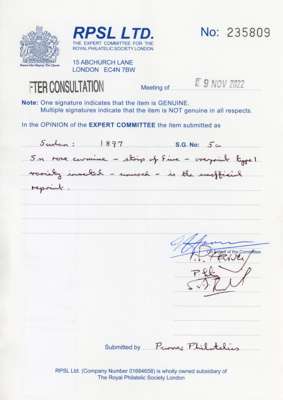 RPSL LTD.
THE EXPERT COMMITTEE FOR THE
ROYAL PHILATELIC SOCIETY LONDON
No: 235809
15 ABCHURCH LANE
LONDON EC4N 7BW
FTER CONSULTATION
Meeting of 9 NOV 2022
Note: One signature indicates that the item is GENUINE.
Multiple signatures indicate that the item is NOT genuine in all respects.
In the OPINION of the EXPERT COMMITTEE the item submitted as
Sudan: 1897 S.G. No: 5a
5m rose carmine - strip of five - overprint type 1
variety inverted - unused - is the unofficial
reprint.
of the Committee
Submitted by Purves Philatelics
RPSL Ltd. (Company Number 01664658) is wholly owned subsidiary of
The Royal Philatelic Society London